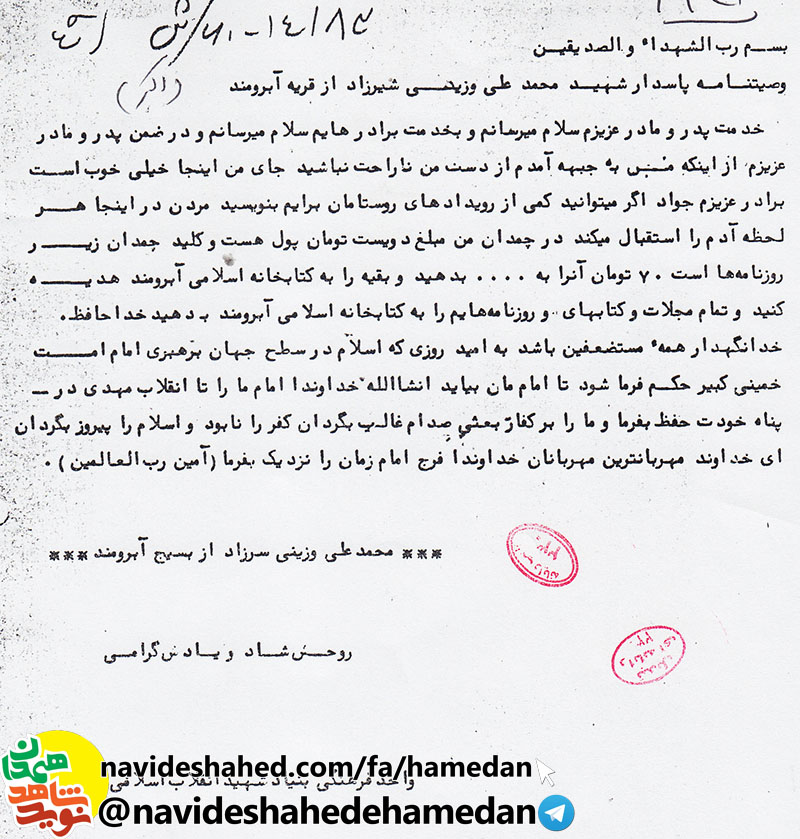 ۱۴/۸۳-۶۱۰/ش
بسم رب الشهداء والصدیقین
وصیتنامه پاسدار شهید محمد علی وزینی شیرزاد از قریه آبرومند
خدمت پدر و مادر عزیزم سلام میرسانم و بخدمت برادرهایم سلام میرسانم و در ضمن پدر و مادر
عزیزم از اینکه من به جبهه آمدم از دست من ناراحت نباشید جای من اینجا خیلی خوب است
برادر عزیزم جواد اگر میتوانید کمی از رویدادهای روستامان برایم بنویسید مردن در اینجا هر
لحظه آدم را استقبال میکند در چمدان من مبلغ دویست تومان پول هست و کلید چمدان زیر
روزنامه‌ها است ۷۰ تومان آنرا به .... بدهید و بقیه را به کتابخانه اسلامی آبرومند هدیه
کنید و تمام مجلات و کتابهای و روزنامه‌هایم را به کتابخانه اسلامی آبرومند بدهید خداحافظ.
خدانگهدار همهء مستضعفین باشد به امید روزی که اسلام در سطح جهان برهبری امام امت
خمینی کبیر حکم فرما شود تا امام مان بیاید انشاالله خداوندا امام ما را تا انقلاب مهدی در
پناه خودت حفظ بفرما و ما را بر کفار بعثی صدام غالب بگردان کفر را نابود و اسلام را پیروز بگردان
ای خداوند مهربانترین مهربانان خداوندا فرج امام زمان را نزدیک بفرما (آمین رب العالمین).
*** محمد علی وزینی سرزاد از بسیج آبرومند ***
روحش شاد و یادش گرامی
واحد فرهنگی بنیاد شهید انقلاب اسلامی
نوید شاهد همدان
navideshahed.com/fa/hamedan
@navideshahedehamedan